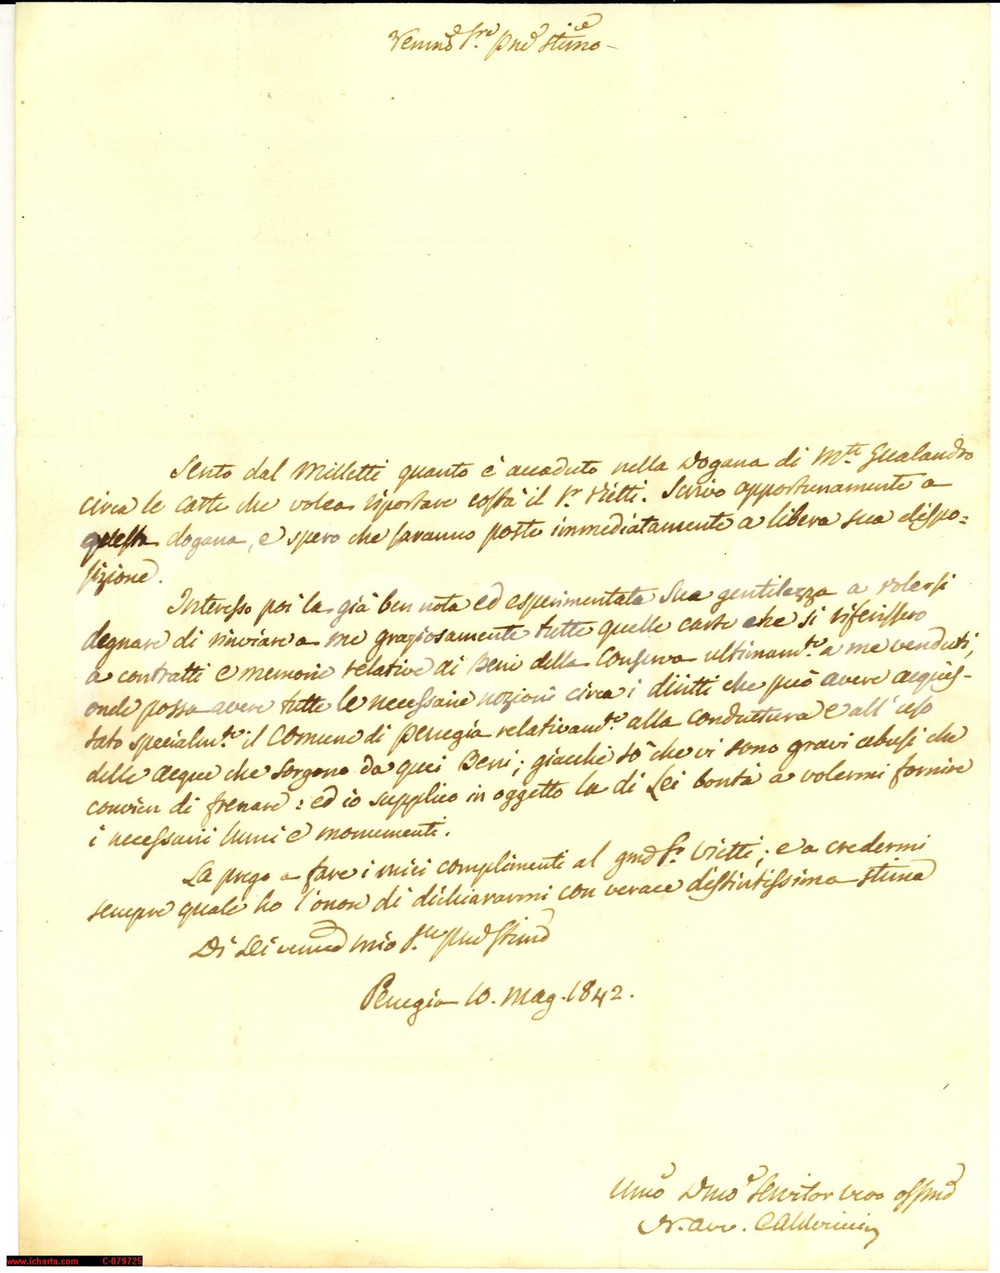 Sento dal Milletti quanto è accaduto nella Dogana di Mte Gualandro
circa le Carte che volea riportare costà il Sr Vietti. Scrivo opportunamente a
questa dogana, e spero che saranno poste immediatamente a libera sua dispo=
sizione.
Interesso poi la già ben nota ed esperimentata Sua gentilezza a volersi
degnare di inviare a me graziosamente tutte quelle carte che si riferissero
a contratti e memorie relative di Beni della ultimamte a me venduti,
onde possa avere tutte le necessarie nozioni circa i diritti che può avere acquis-
tato specialmte il Comune di Perugia relativamte alla conduttura e all'uso
delle acque che sorgono da quei Beni; giacchè so che vi sono gravi abusi che
convien di frenare: ed io supplico in oggetto la di Lei bontà a volermi fornire
i necessarii lumi e monumenti.
La prego a fare i miei complimenti al Sr Vietti; e a credermi
sempre quale ho l'onore di dichiararmi con verace distintissima stima
Di Lei mio
Perugia 10. Mag. 1842.
Umo Dmo Servitor vero
Avv. Calderini
www.icharta.com C-079725